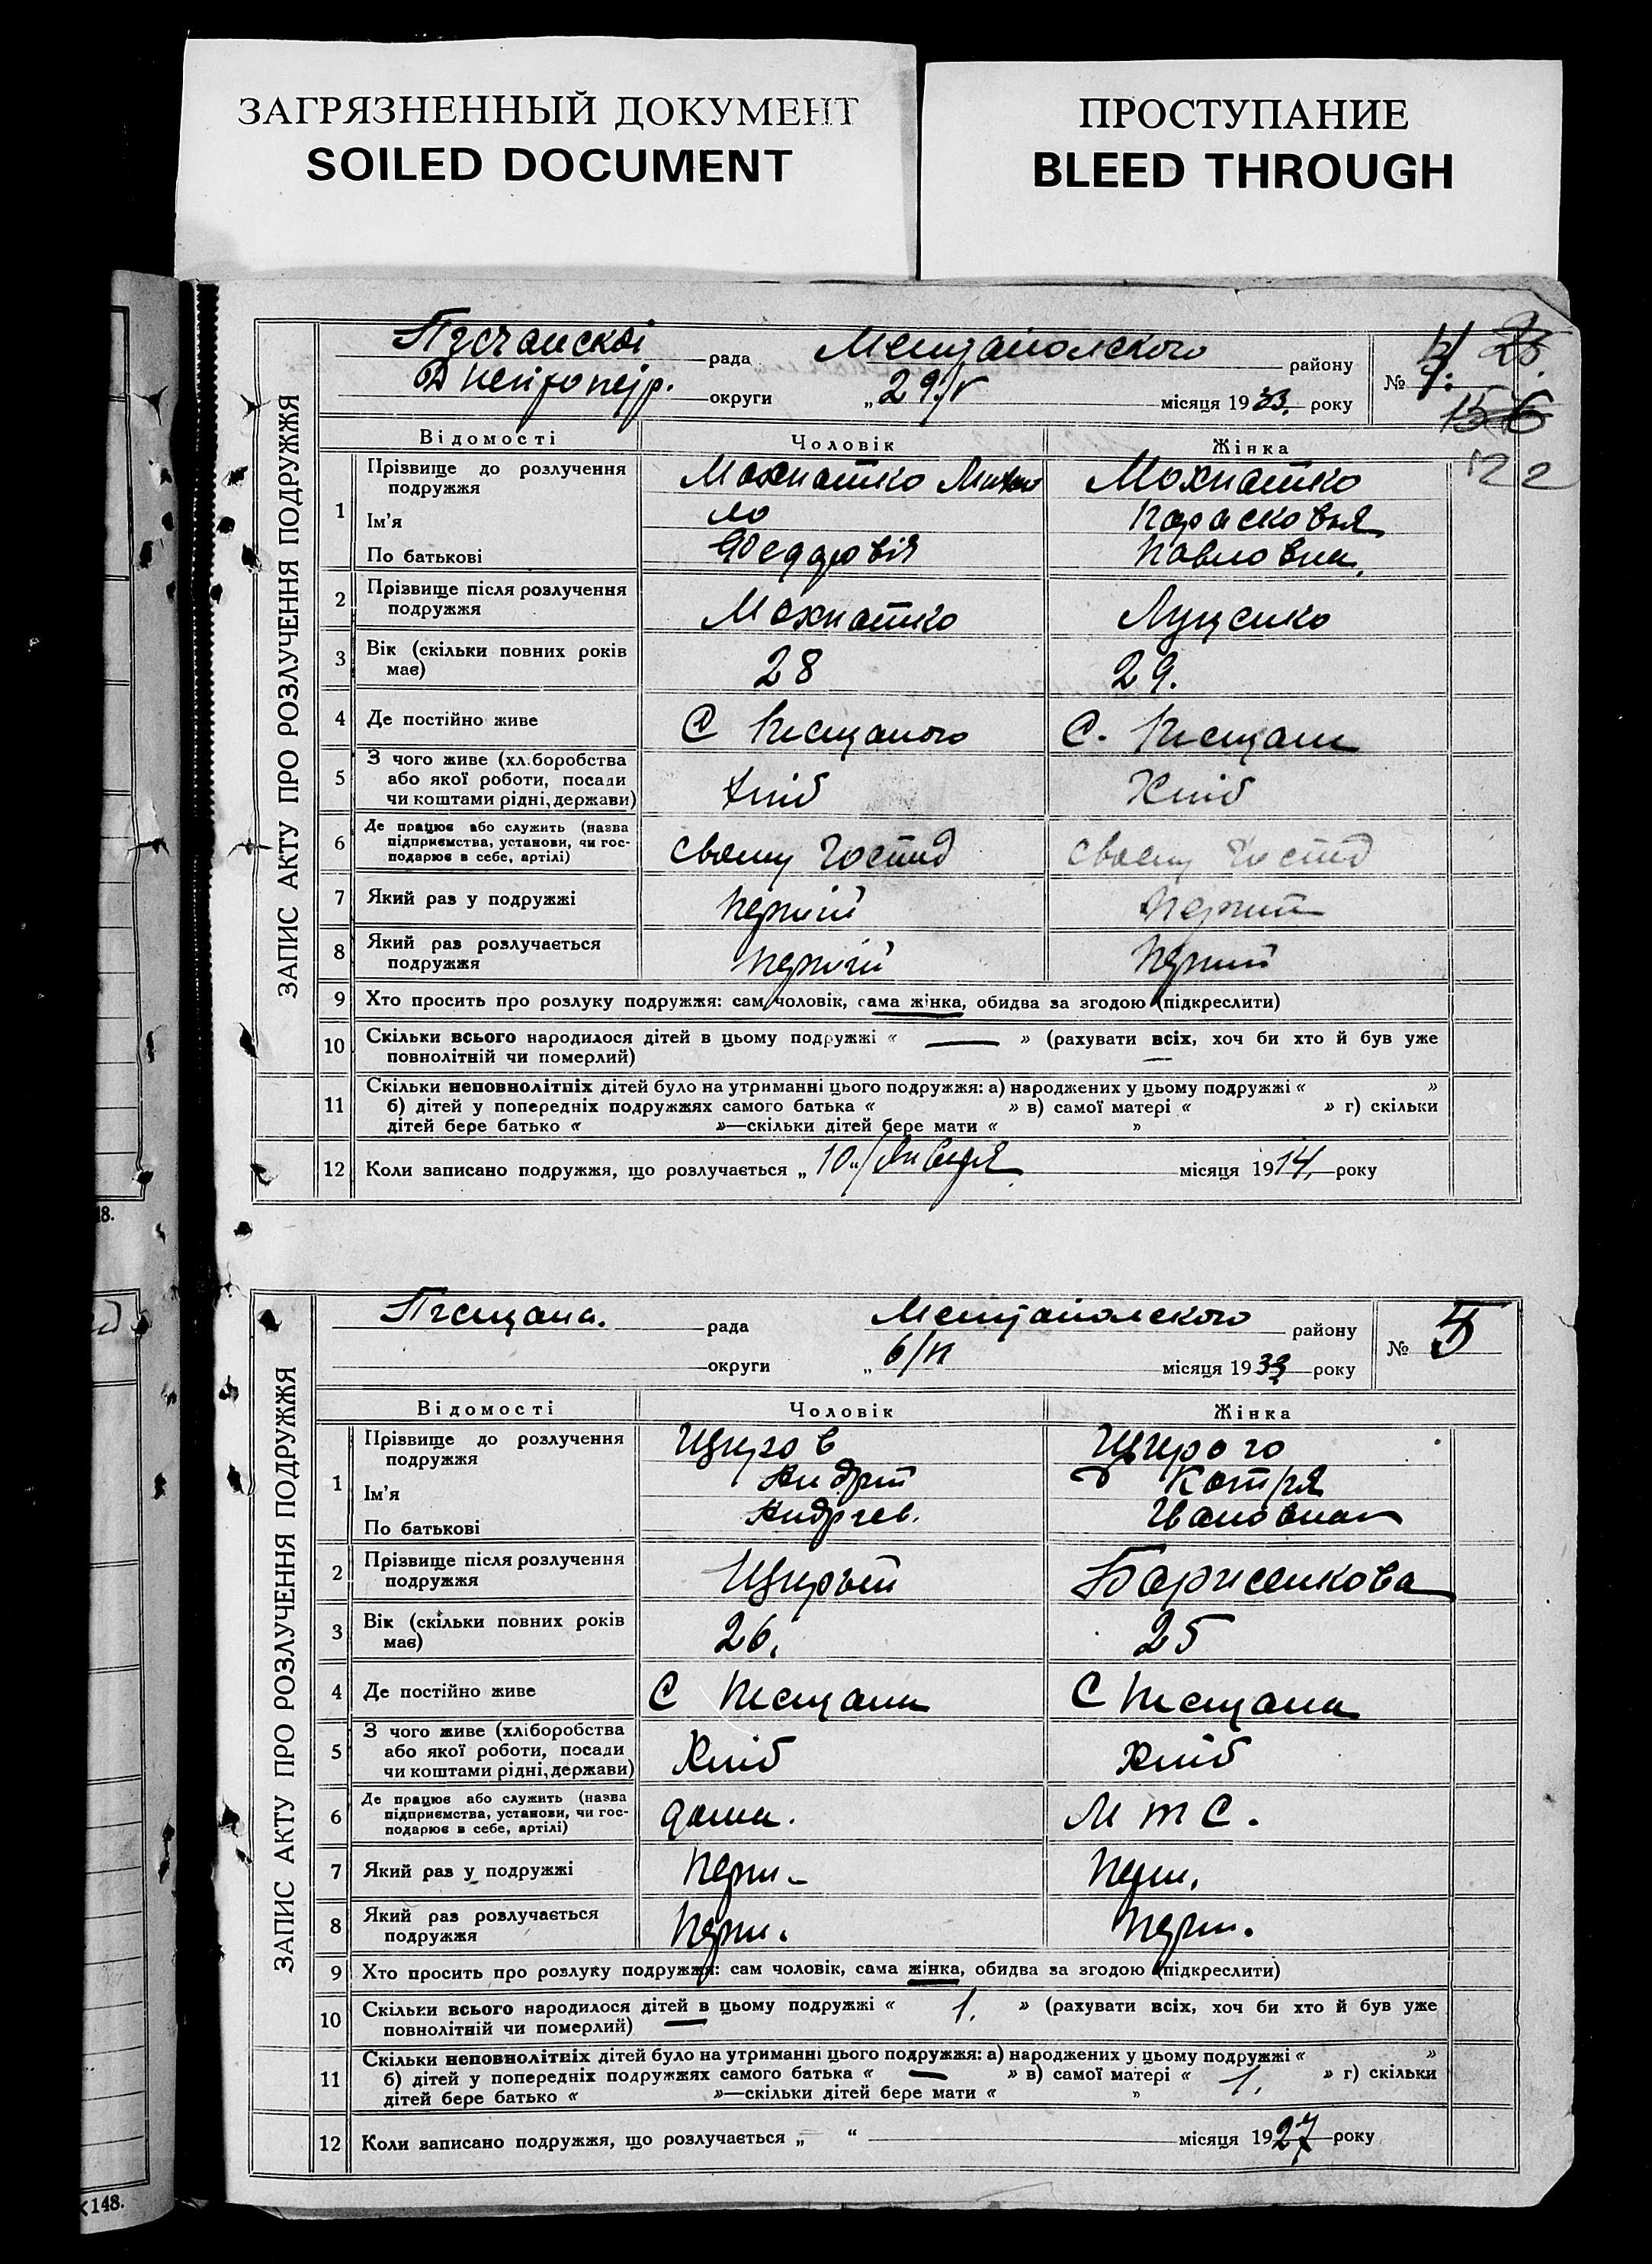 ЗАГРЯЗНЕННЫЙ ДОКУМЕНТ
SOILED DOCUMENT
ПРОСТУПАНИЕ
BLEED THROUGH
ЗАПИС АКТУ ПРО РОЗЛУЧЕННЯ ПОДРУЖЖЯ
рада району №
округи „29/V місяця 1933. року
122
Відомості Чоловік Жінка
1 Прізвище до розлучення подружжя Махнатко Михай Махнатко
Ім’я ло Парасковья
По батькові Павловна
2 Прізвище після розлучення
подружжя Махнатко Луценко
3 Вік (скільки повних років
має) 28 29.
4 Де постійно живе С С.
5 З чого живе (хліборобства
або якої роботи, посади
чи коштами рідні, держави) Хліб Хліб
6 Де працює або служить (назва
підприємства, установи, чи гос-
подарює в себе, артілі) своему Господ своему Господ
7 Який раз у подружжі
8 Який раз розлучається
подружжя
9 Хто просить про розлуку подружжя: сам чоловік, сама жінка, обидва за згодою (підкреслити)
10 Скільки всього народилося дітей в цьому подружжі « — » (рахувати всіх, хоч би хто й був уже
повнолітній чи померлий)
11 Скільки неповнолітніх дітей було на утриманні цього подружжя: а) народжених у цьому подружжі « »
б) дітей у попередніх подружжях самого батька « » в) самої матері « » г) скільки
дітей бере батько « »—скільки дітей бере мати « »
12 Коли записано подружжя, що розлучається „10“/Января місяця 1914 року
18.
ЗАПИС АКТУ ПРО РОЗЛУЧЕННЯ ПОДРУЖЖЯ
Пісщана. рада району № 5
округи „ місяця 1933 року
Відомості Чоловік Жінка
1 Прізвище до розлучення
подружжя Щирого
Ім’я Андрій Катря
По батькові Андреев. Ивановна
2 Прізвище після розлучення
подружжя Щирый Борисенкова
3 Вік (скільки повних років
має) 26. 25
4 Де постійно живе С С
5 З чого живе (хліборобства
або якої роботи, посади
чи коштами рідні, держави) Хліб Хліб
6 Де працює або служить (назва
підприємства, установи, чи гос-
подарює в себе, артілі) дома. М Т С.
7 Який раз у подружжі Перш. Перш.
8 Який раз розлучається
подружжя Перш. Перш.
9 Хто просить про розлуку подружжя: сам чоловік, сама жінка, обидва за згодою (підкреслити)
10 Скільки всього народилося дітей в цьому подружжі « 1. » (рахувати всіх, хоч би хто й був уже
повнолітній чи померлий)
11 Скільки неповнолітніх дітей було на утриманні цього подружжя: а) народжених у цьому подружжі « »
б) дітей у попередніх подружжях самого батька « — » в) самої матері « 1. » г) скільки
дітей бере батько « »—скільки дітей бере мати « »
12 Коли записано подружжя, що розлучається „ “ місяця 1927 року
148.